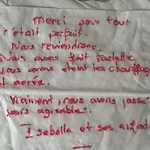 Merci pour tout
c'était parfait.
Nous reviendrons.
Nous avons fait
vous avons éteint les chauffages
et aéré.
Vraiment, nous avons passé
jours agréable.
Isabelle et ses enfants